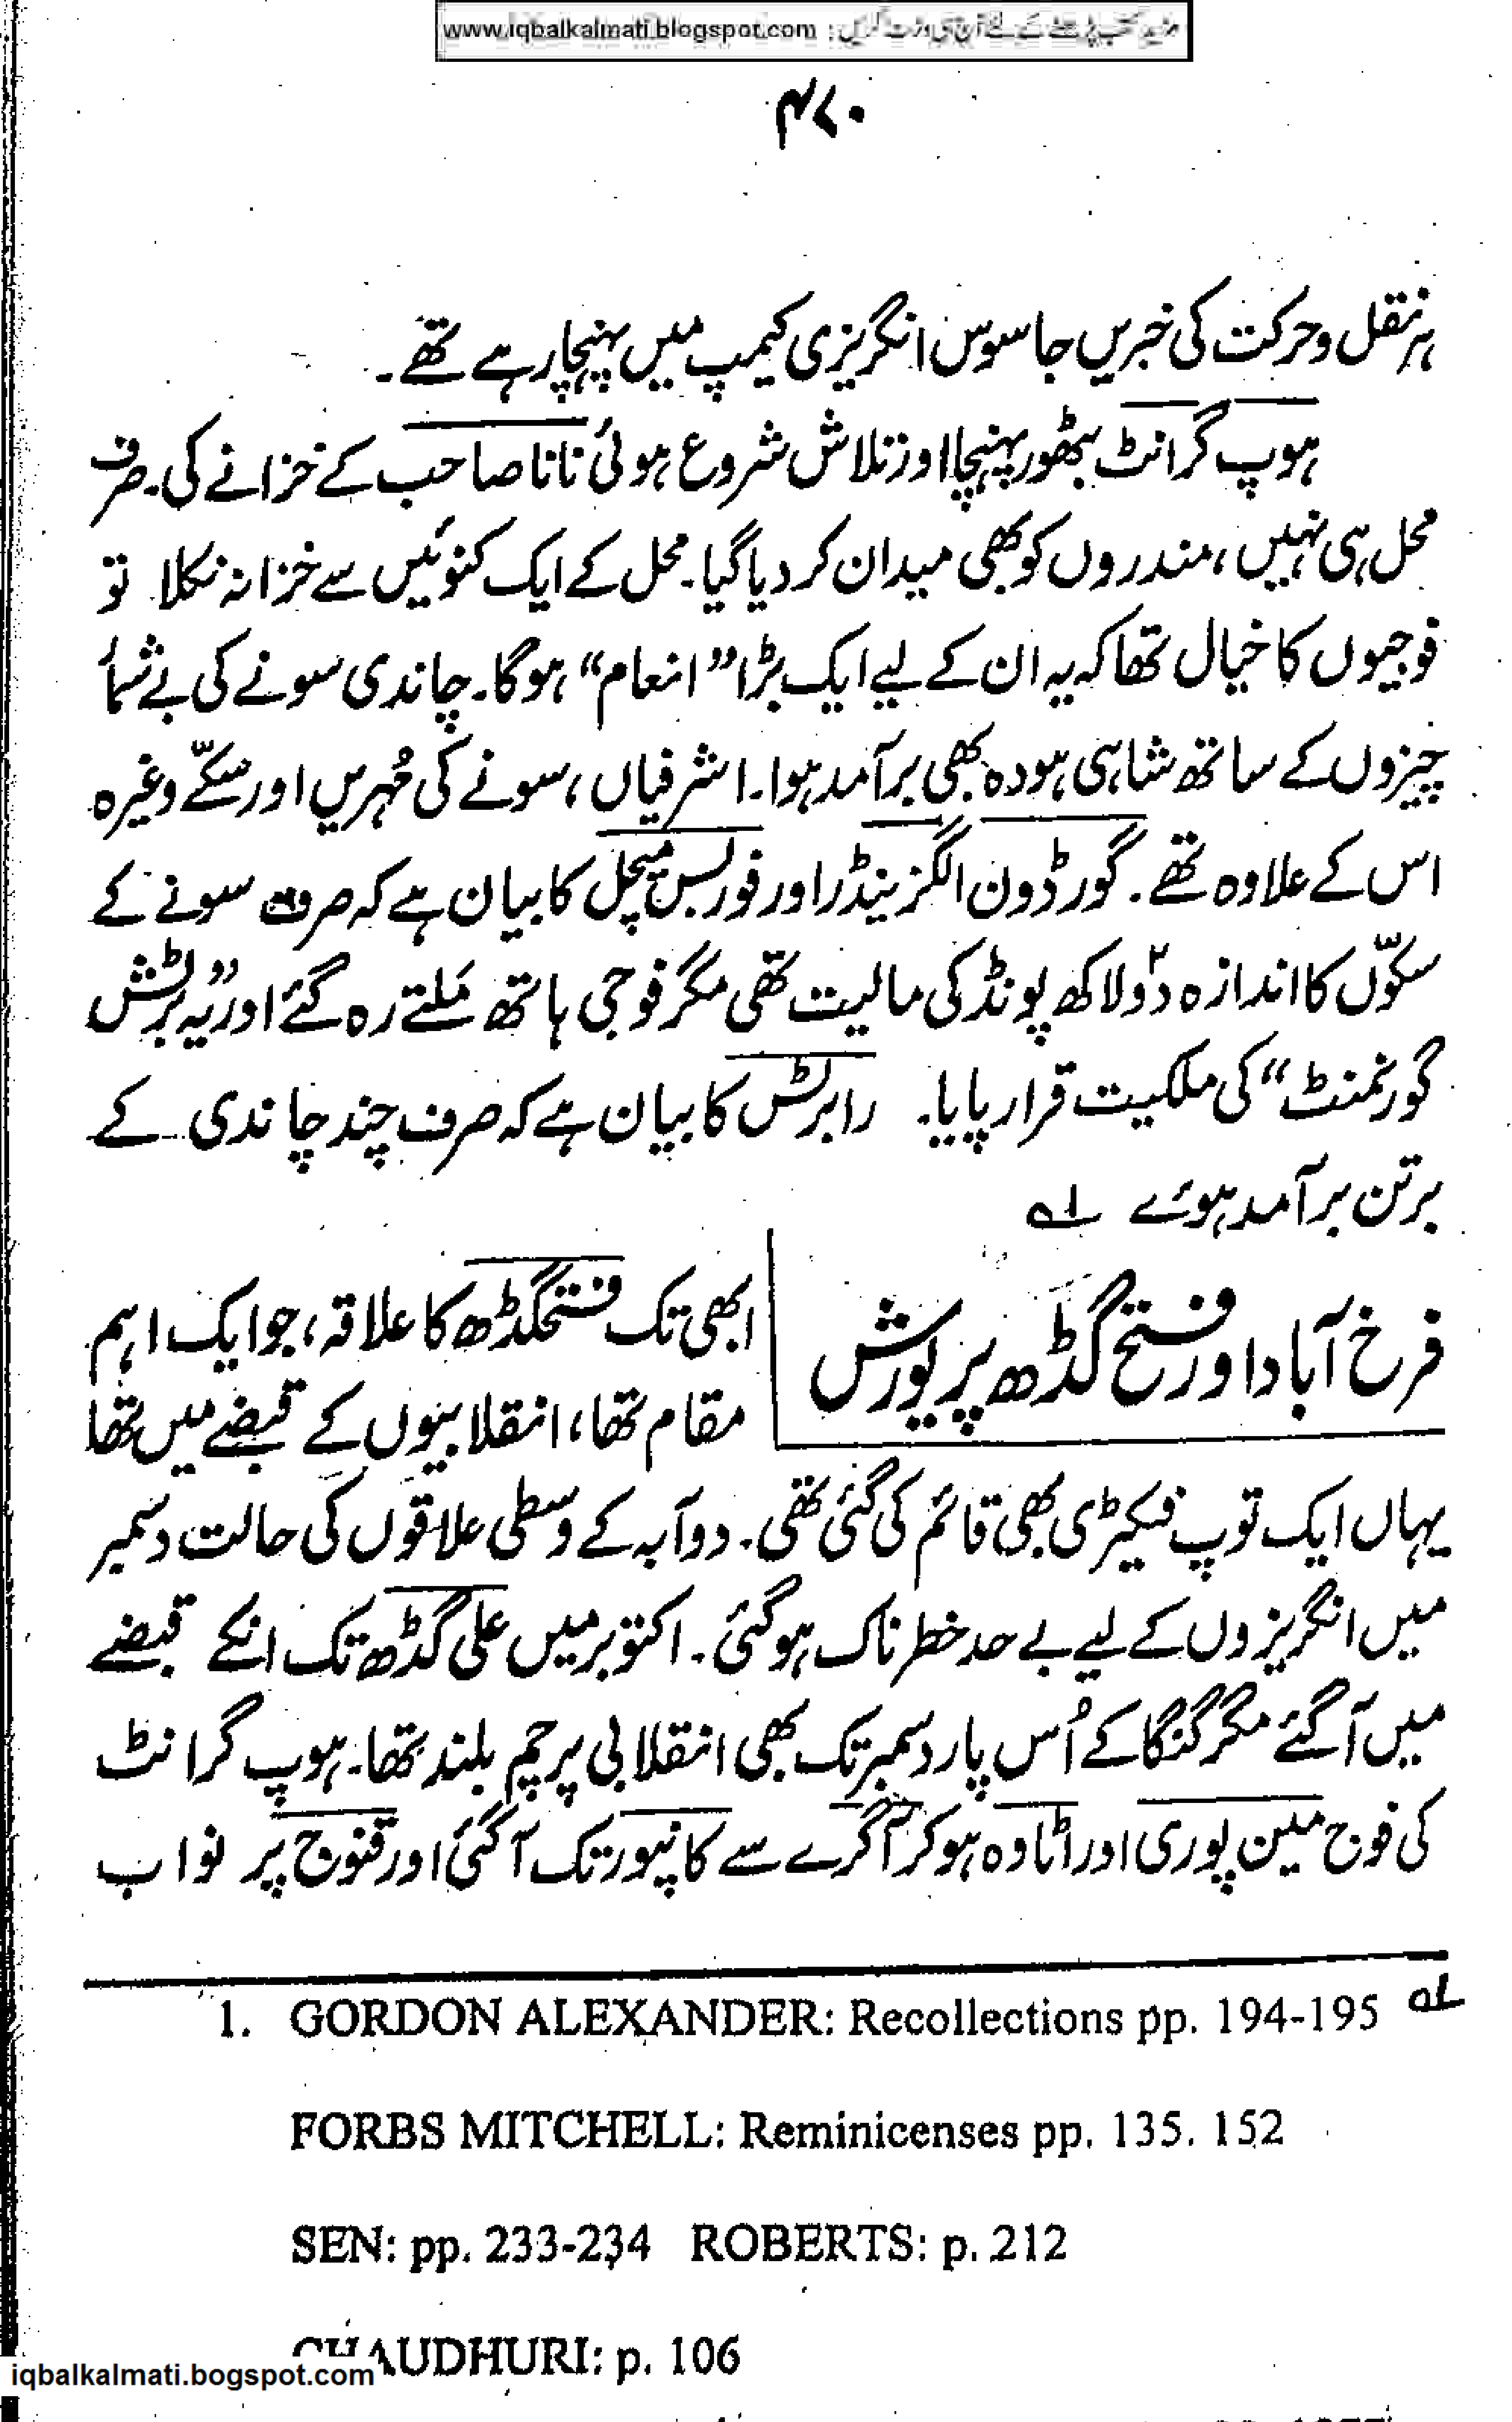 www.iqbalkalmati.blogspot.com : مزید کتب پڑھنے کے لئے آج ہی وزٹ کریں
۴۷۰
ہر نقل و حرکت کی خبریں جاسوس انگریزی کیمپ میں پہنچا رہے تھے۔
ہوپ گرانٹ بٹھور پہنچا اور تلاش شروع ہوئی نانا صاحب کے خزانے کی۔ صرف
محل ہی نہیں، مندروں کو بھی میدان کر دیا گیا۔ محل کے ایک کنوئیں سے خزانہ نکلا تو
فوجیوں کا خیال تھا کہ یہ ان کے لیے ایک بڑا ”انعام“ ہوگا۔ چاندی سونے کی بے شمار
چیزوں کے ساتھ شاہی ہودہ بھی برآمد ہوا۔ اشرفیاں، سونے کی مُہریں اور سکّے وغیرہ
اس کے علاوہ تھے۔ گورڈون الگزینڈر اور فوربس میچل کا بیان ہے کہ صرف سونے کے
سکّوں کا اندازہ دو۲ لاکھ پونڈ کی مالیت تھی مگر فوجی ہاتھ مَلتے رہ گئے اور یہ ”برٹش
گورنمنٹ“ کی ملکیت قرار پایا۔ رابرٹس کا بیان ہے کہ صرف چند چاندی کے
برتن برآمد ہوئے ۱ھ
فرخ آباد اور فتح گڈھ پر یورش
ابھی تک فتحگڈھ کا علاقہ، جو ایک اہم
مقام تھا، انقلابیوں کے قبضے میں تھا
یہاں ایک توپ فیکٹری بھی قائم کی گئی تھی۔ دوآبہ کے وسطی علاقوں کی حالت دسمبر
میں انگریزوں کے لیے بے حد خطرناک ہوگئی۔ اکتوبر میں علی گڈھ تک انکے قبضے
میں آگئے مگر گنگا کے اُس پار دسمبر تک بھی انقلابی پرچم بلند تھا۔ ہوپ گرانٹ
کی فوج مین پوری اور اٹاوہ ہو کر آگرے سے کانپور تک آگئی اور قنوج پر نواب
1. GORDON ALEXANDER: Recollections pp. 194-195 ۱ھ
FORBS MITCHELL: Reminicenses pp. 135. 152
SEN: pp. 233-234 ROBERTS: p. 212
CHAUDHURI: p. 106
iqbalkalmati.bogspot.com